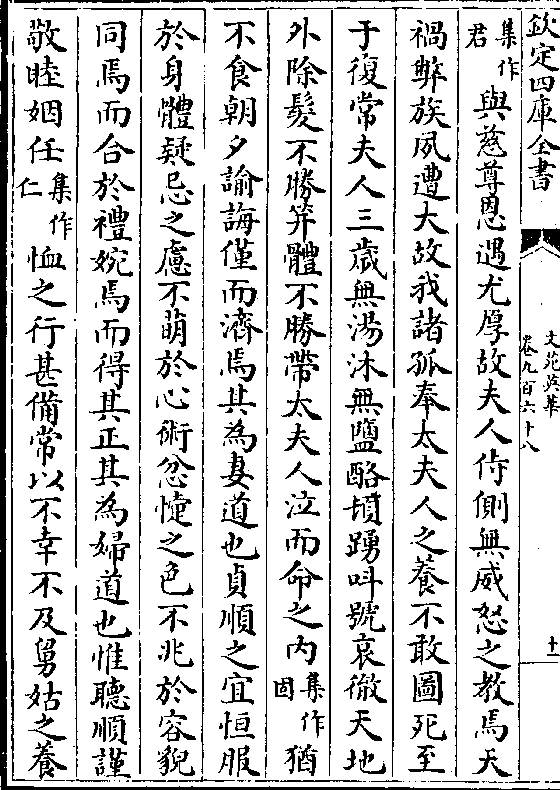 欽定四庫全書
文苑英華
卷九百六十八
十
集作君與慈尊恩遇尤厚故夫人侍側無威怒之教焉天
禍弊族夙遭大故我諸孤奉太夫人之養不敢圖死至
于復常夫人三歲無湯沐無鹽酪擗踴叫號哀徹天地
外除髮不勝笄體不勝帶太夫人泣而命之内集作因猶
不食朝夕諭誨僅而濟焉其為妻道也貞順之宜恒服
於身體疑忌之慮不萌於心術忿懥之色不兆於容貌
同焉而合於禮婉焉而得其正其為婦道也惟聽順謹
敬睦姻任集作仁恤之行甚備常以不幸不及舅姑之養